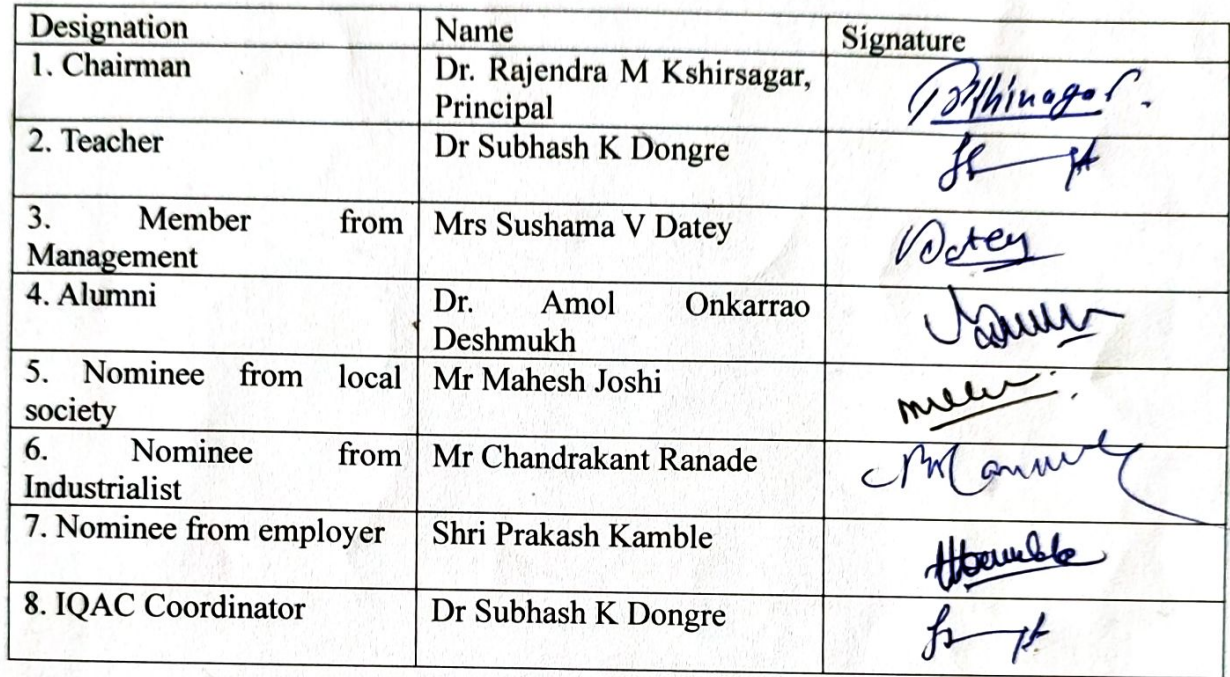 Designation Name Signature
1. Chairman Dr. Rajendra M Kshirsagar,
Principal
2. Teacher Dr Subhash K Dongre
3. Member from Mrs Sushama V Datey
Management
Datey
4. Alumni Dr. Amol Onkarrao
Deshmukh
5. Nominee from local Mr Mahesh Joshi
society
6. Nominee from Mr Chandrakant Ranade
Industrialist
7. Nominee from employer Shri Prakash Kamble
8. IQAC Coordinator Dr Subhash K Dongre